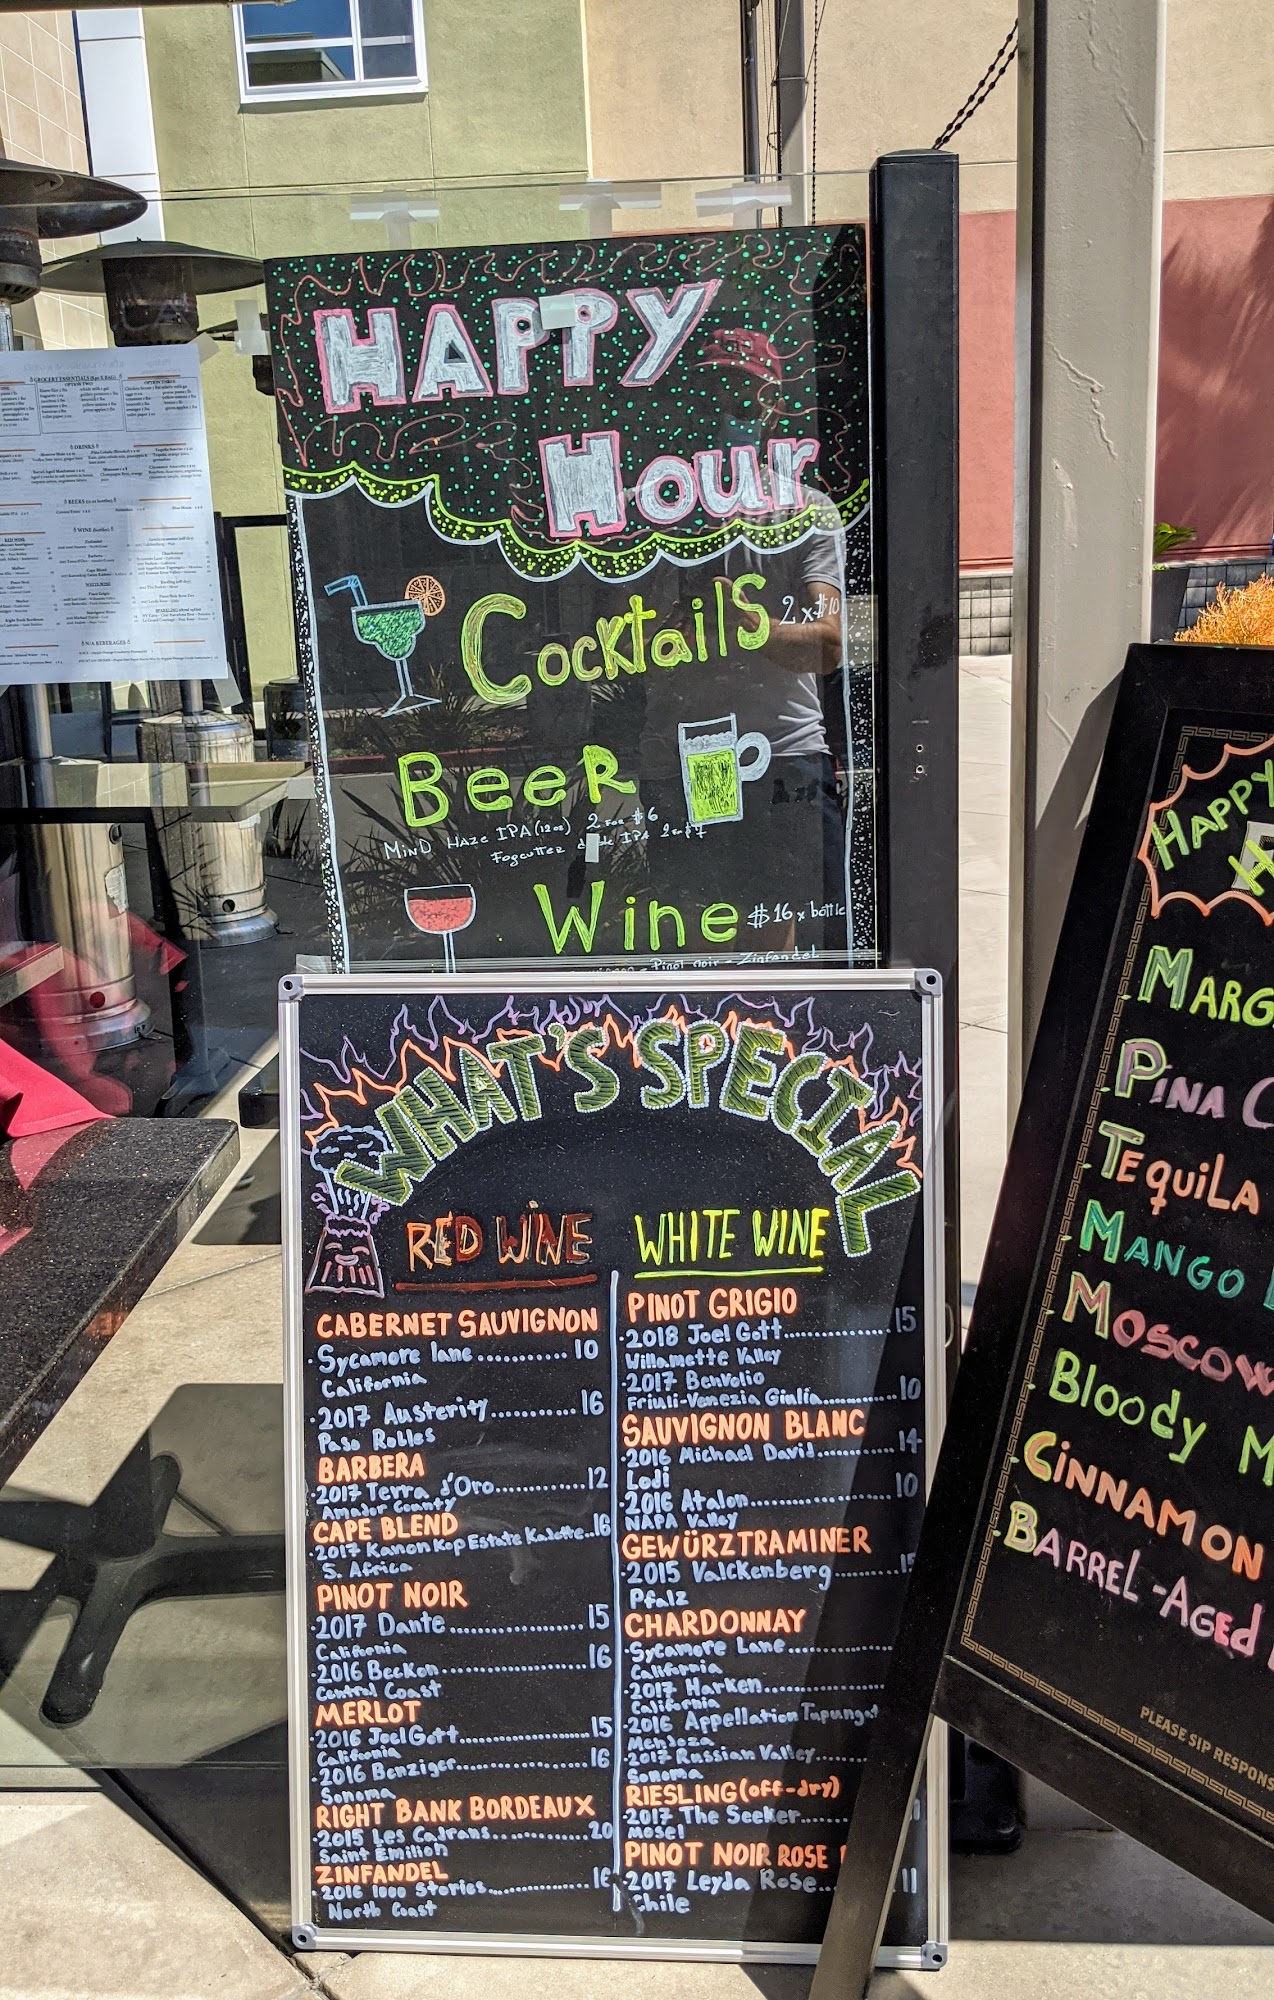 HAPPY
Hour
Cocktails 2 x $10
Beer
Mind Haze IPA (12oz) 2 for $6
Fogcutter IPA 2 for $7
Wine $16 x bottle
- Pinot noir - Zinfandel
WHAT'S SPECIAL
RED WINE
CABERNET SAUVIGNON
Sycamore lane............10
California
2017 Austerity...........16
Paso Robles
BARBERA
2017 Terra d'Oro..............12
Amador County
CAPE BLEND
2017 Kanonkop Estate Kadette..16
S. Africa
PINOT NOIR
2017 Dante....................15
California
2016 Becken....................16
Central Coast
MERLOT
2016 Joel Gott.................15
California
2016 Benziger..................16
Sonoma
RIGHT BANK BORDEAUX
2015 Les Cadrans...............20
Saint Emilion
ZINFANDEL
2016 1000 Stories..............16
North Coast
WHITE WINE
PINOT GRIGIO
2018 Joel Gott..............15
Willamette Valley
2017 Benvolio
Friuli-Venezia Giulia.........10
SAUVIGNON BLANC
2016 Michael David..........14
Lodi
2016 Atalon.................10
NAPA Valley
GEWÜRZTRAMINER
2015 Valckenberg.........15
Pfalz
CHARDONNAY
Sycamore Lane............
California
2017 Harken.............
California
2016 Appellation Tupungat
Mendoza
2017 Russian Valley......
Sonoma
RIESLING (off-dry)
2017 The Seeker......
Mosel
PINOT NOIR ROSE
2017 Leyda Rose...11
Chile
HAPPY
H
MARG
PINA C
TEQUILA
MANGO
MOSCOW
Bloody M
CINNAMON
BARREL-AGED
PLEASE SIP RESPONS
GROCERY ESSENTIALS
OPTION TWO
OPTION THREE
DRINKS
BEERS
WINE
RED WINE
WHITE WINE
N/A BEVERAGES